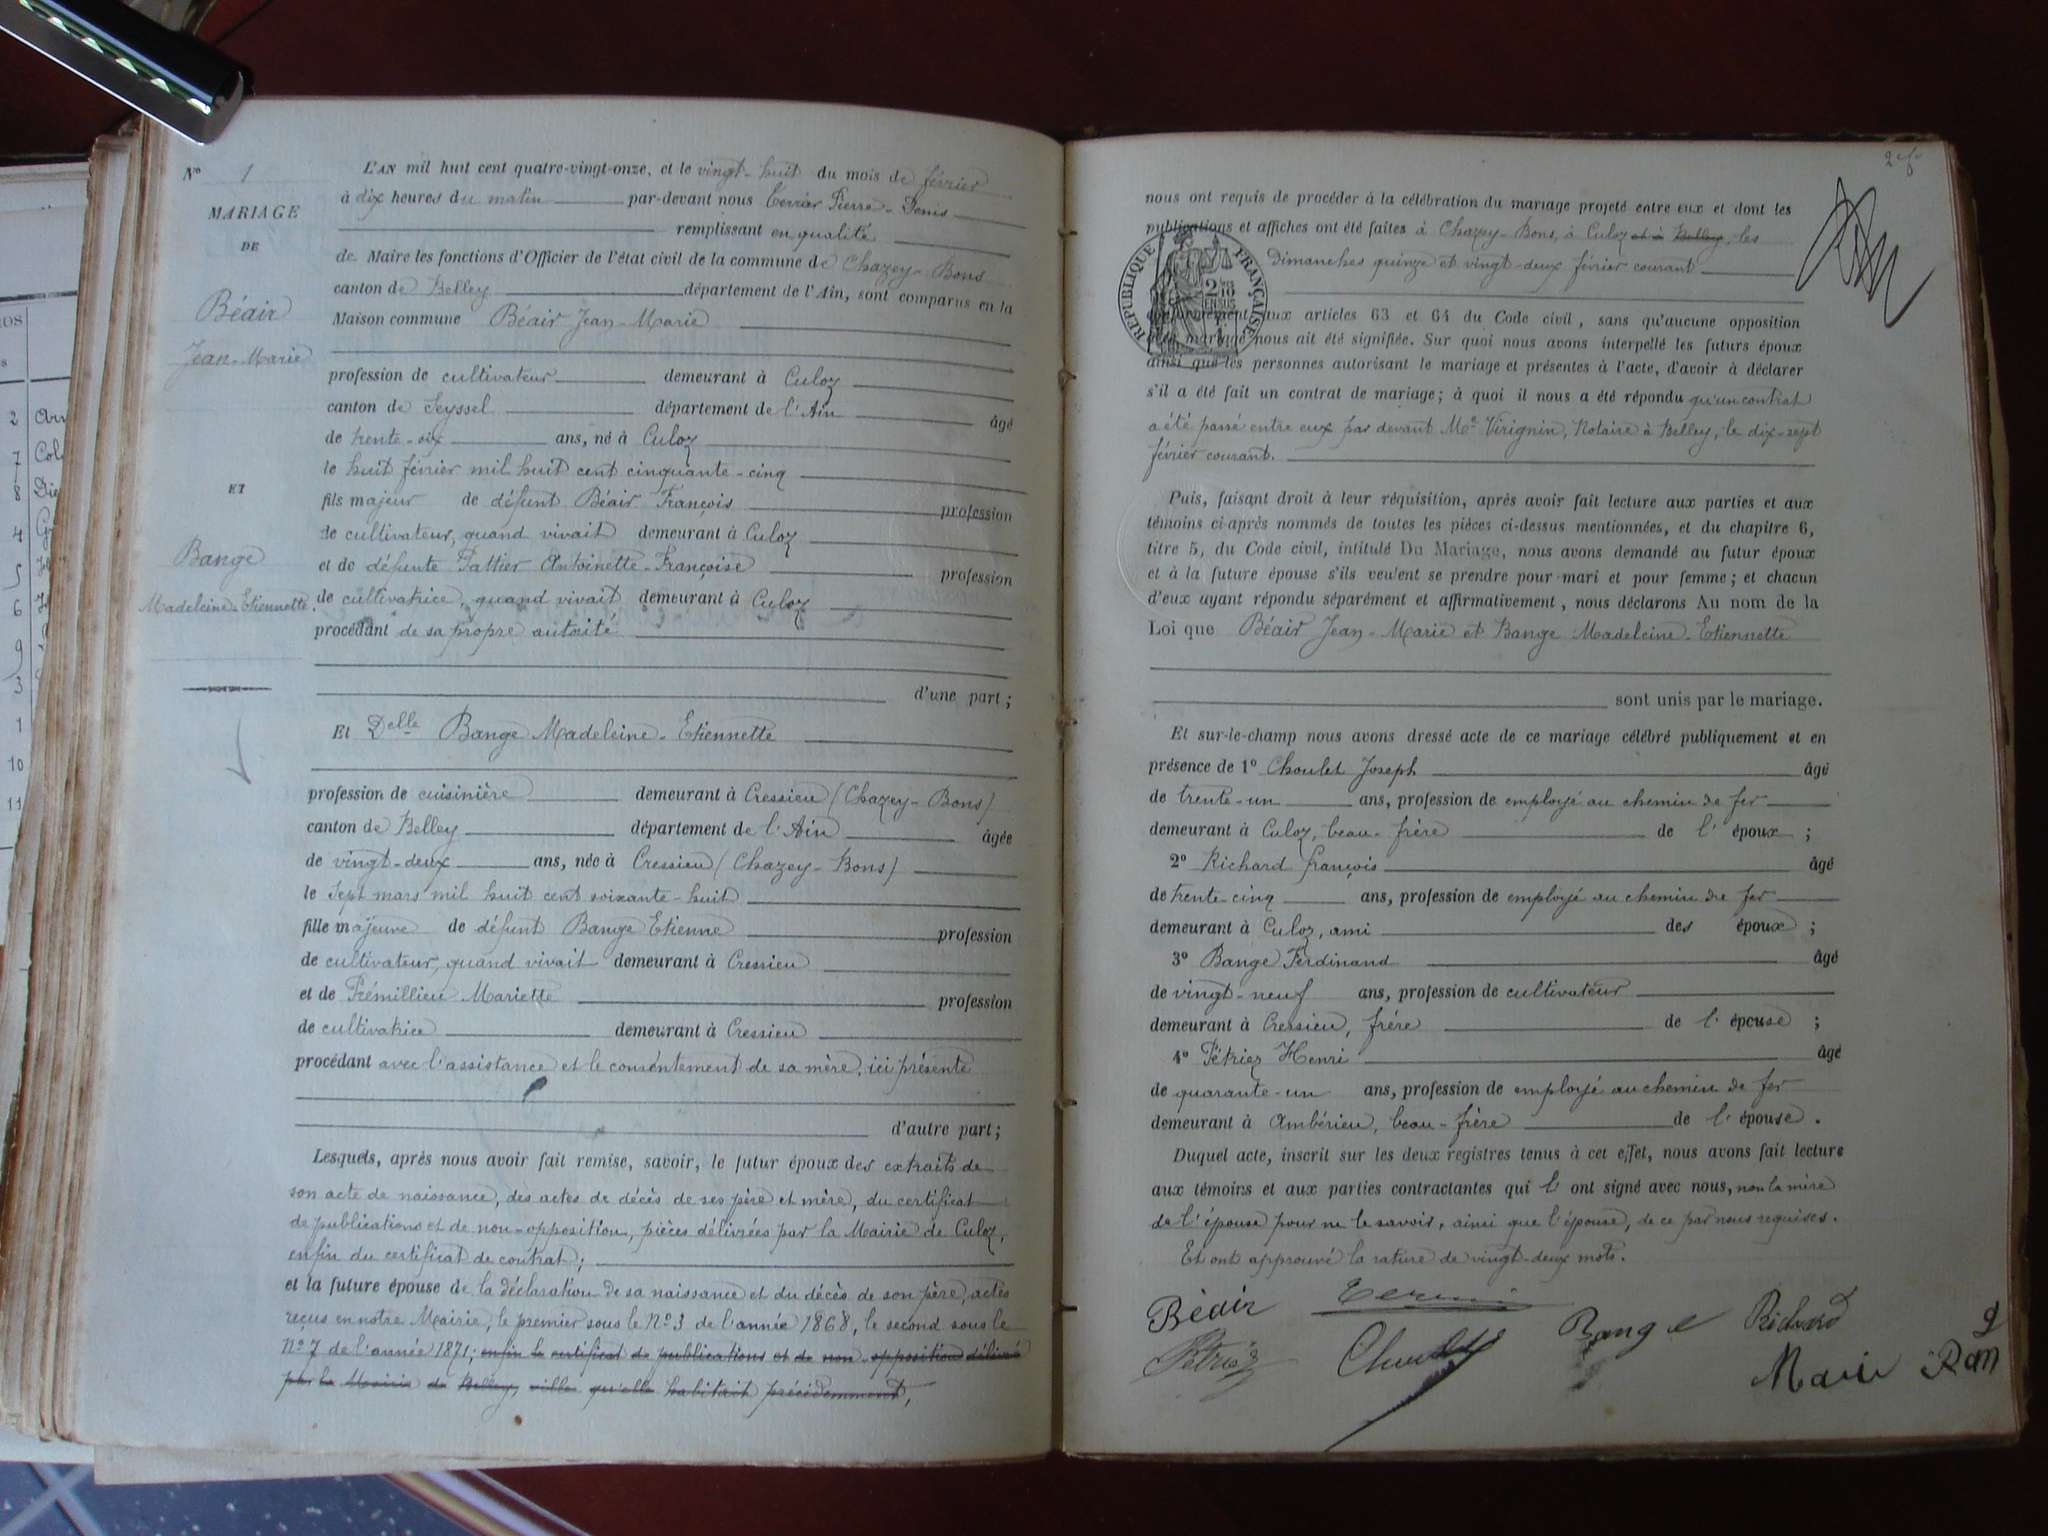 N° 1
MARIAGE
DE
Béair
Jean-Marie
ET
Bange
Madeleine-Etiennette.
L'AN mil huit cent quatre-vingt-onze, et le vingt-huit du mois de février
à dix heures du matin par-devant nous Terrier Pierre-Denis
remplissant en qualité
de Maire les fonctions d'Officier de l'état civil de la commune de Chazey-Bons
canton de Belley département de l'Ain, sont comparus en la
Maison commune Béair Jean-Marie
profession de cultivateur demeurant à Culoz
canton de Seyssel département de l'Ain âgé
de trente-six ans, né à Culoz
le huit février mil huit cent cinquante-cinq
fils majeur de défunt Béair François profession
de cultivateur, quand vivait demeurant à Culoz
et de défunte Pattier Antoinette-Françoise profession
de cultivatrice, quand vivait demeurant à Culoz
procédant de sa propre autorité
d'une part;
Et Delle Bange Madeleine-Etiennette
profession de cuisinière demeurant à Cressieu (Chazey-Bons)
canton de Belley département de l'Ain âgée
de vingt-deux ans, née à Cressieu (Chazey-Bons)
le sept mars mil huit cent soixante-huit
fille majeure de défunt Bange Etienne profession
de cultivateur, quand vivait demeurant à Cressieu
et de Frémillieu Mariette profession
de cultivatrice demeurant à Cressieu
procédant avec l'assistance et le consentement de sa mère, ici présente
d'autre part;
Lesquels, après nous avoir fait remise, savoir, le futur époux des extraits de
son acte de naissance, des actes de décès de ses père et mère, du certificat
de publications et de non-opposition, pièces délivrées par la Mairie de Culoz,
enfin du certificat de contrat;
et la future épouse de la déclaration de sa naissance et du décès de son père, actes
reçus en notre Mairie, le premier sous le N° 3 de l'année 1868, le second sous le
N° 7 de l'année 1871; enfin le certificat de publications et de non-opposition délivré
par la Mairie de Belley, ville qu'elle habitait précédemment,
nous ont requis de procéder à la célébration du mariage projeté entre eux et dont les
publications et affiches ont été faites à Chazey-Bons, à Culoz et à Belley, les
Dimanches quinze et vingt-deux février courant
RÉPUBLIQUE FRANÇAISE
aux articles 63 et 64 du Code civil, sans qu'aucune opposition
mariage nous ait été signifiée. Sur quoi nous avons interpellé les futurs époux
ainsi que les personnes autorisant le mariage et présentes à l'acte, d'avoir à déclarer
s'il a été fait un contrat de mariage; à quoi il nous a été répondu qu'un contrat
a été passé entre eux par devant Me Virignin, Notaire à Belley, le dix-sept
février courant.
Puis, faisant droit à leur réquisition, après avoir fait lecture aux parties et aux
témoins ci-après nommés de toutes les pièces ci-dessus mentionnées, et du chapitre 6,
titre 5, du Code civil, intitulé Du Mariage, nous avons demandé au futur époux
et à la future épouse s'ils veulent se prendre pour mari et pour femme; et chacun
d'eux ayant répondu séparément et affirmativement, nous déclarons Au nom de la
Loi que Béair Jean-Marie et Bange Madeleine-Etiennette
sont unis par le mariage.
Et sur-le-champ nous avons dressé acte de ce mariage célébré publiquement et en
présence de 1° Choulet Joseph âgé
de trente-un ans, profession de employé au chemin de fer
demeurant à Culoz, beau-frère de l'époux;
2° Richard françois âgé
de trente-cinq ans, profession de employé au chemin de fer
demeurant à Culoz, ami des époux;
3° Bange Ferdinand âgé
de vingt-neuf ans, profession de cultivateur
demeurant à Cressieu, frère de l'épouse;
4° Pétriez Henri âgé
de quarante-un ans, profession de employé au chemin de fer
demeurant à Ambérieu, beau-frère de l'épouse.
Duquel acte, inscrit sur les deux registres tenus à cet effet, nous avons fait lecture
aux témoins et aux parties contractantes qui l'ont signé avec nous, non la mère
de l'épouse pour ne le savoir, ainsi que l'épouse, de ce par nous requises.
Et ont approuvé la rature de vingt-deux mots.
Béair
Bange
Richard